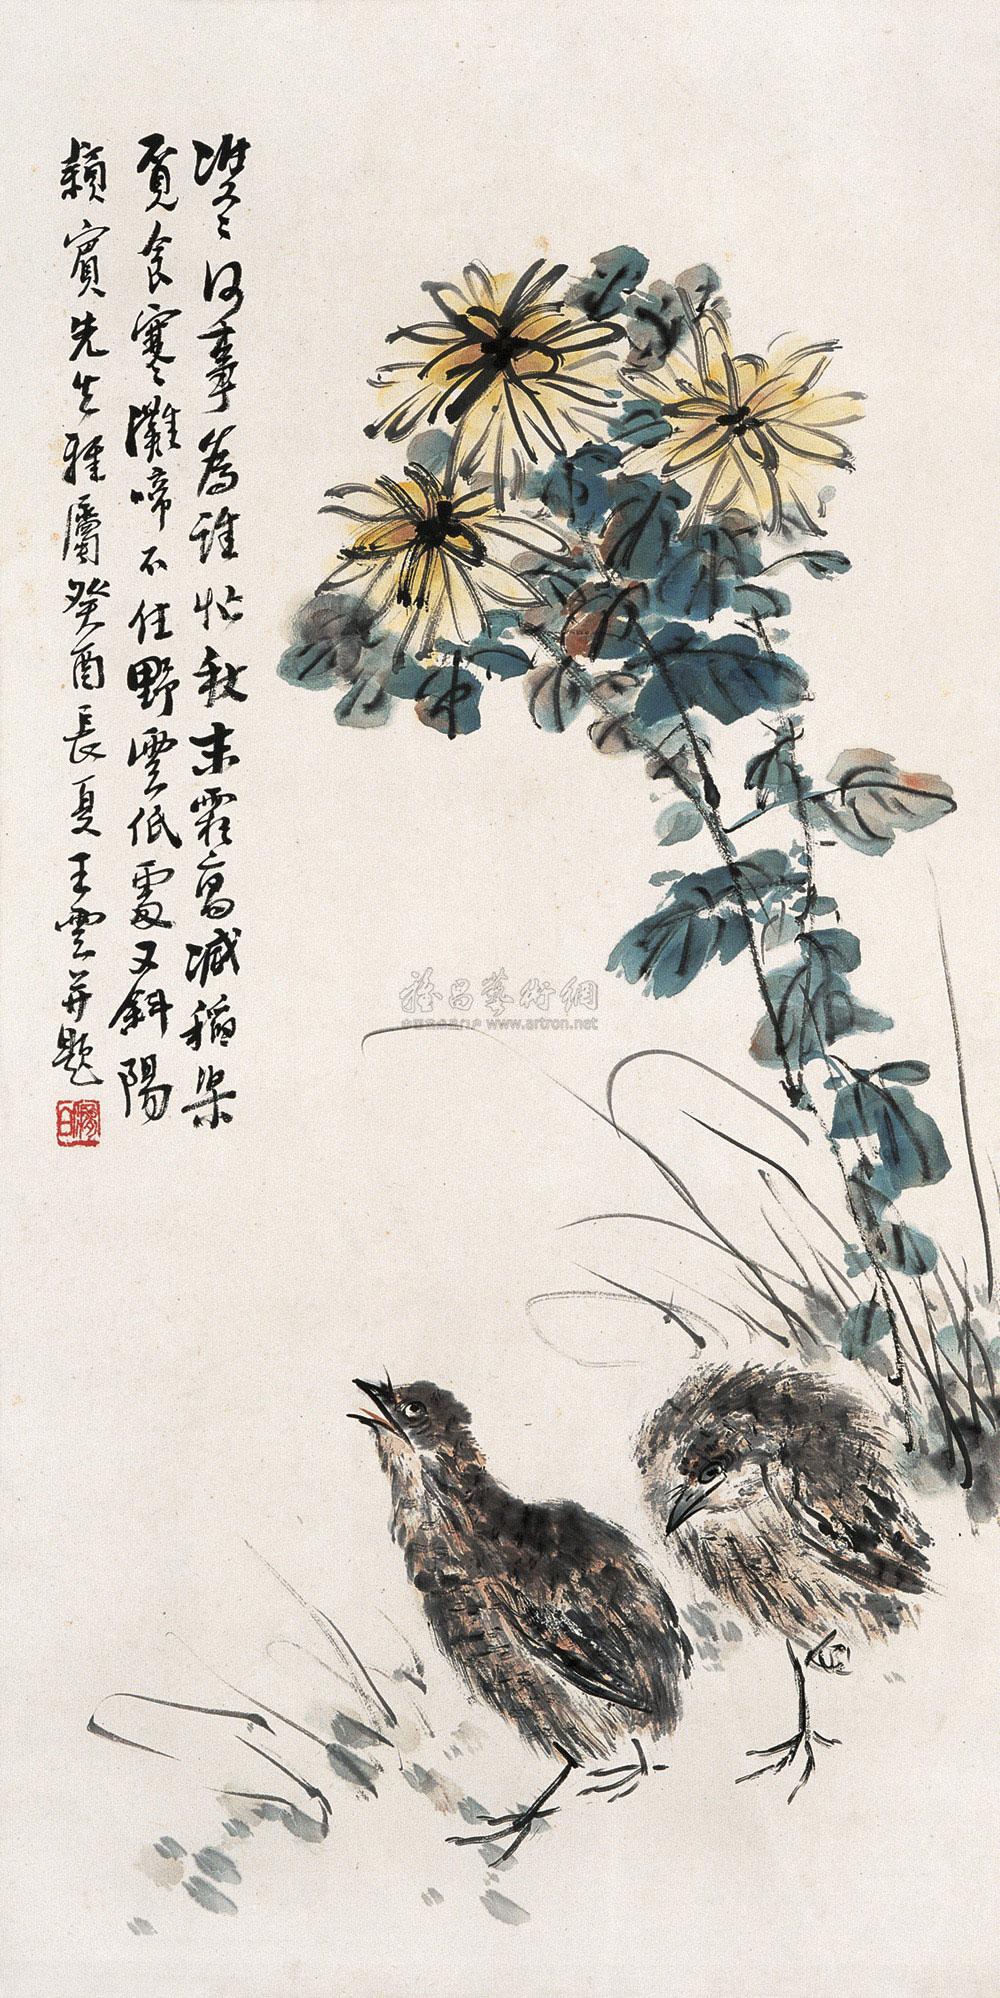 雙雙何事為誰忙秋末霜高減稻粱
覓食寒寒灘啼不住野雲低處又斜陽
穎賓先生雅屬癸酉長夏王雲并題
雅昌藝術網
www.artron.net